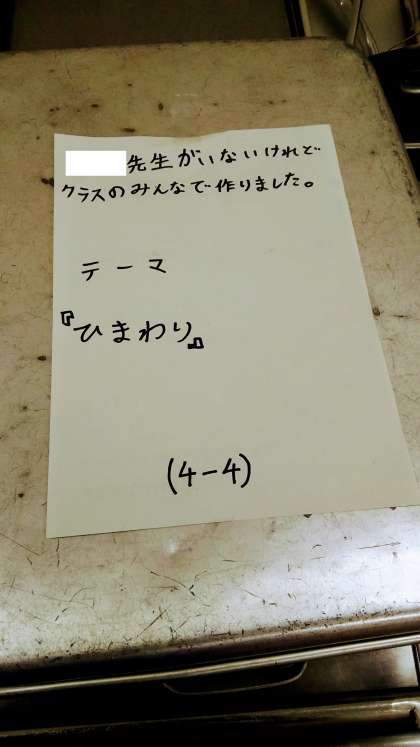 先生がいないけれど
クラスのみんなで作りました。
テーマ
『ひまわり』
(4-4)